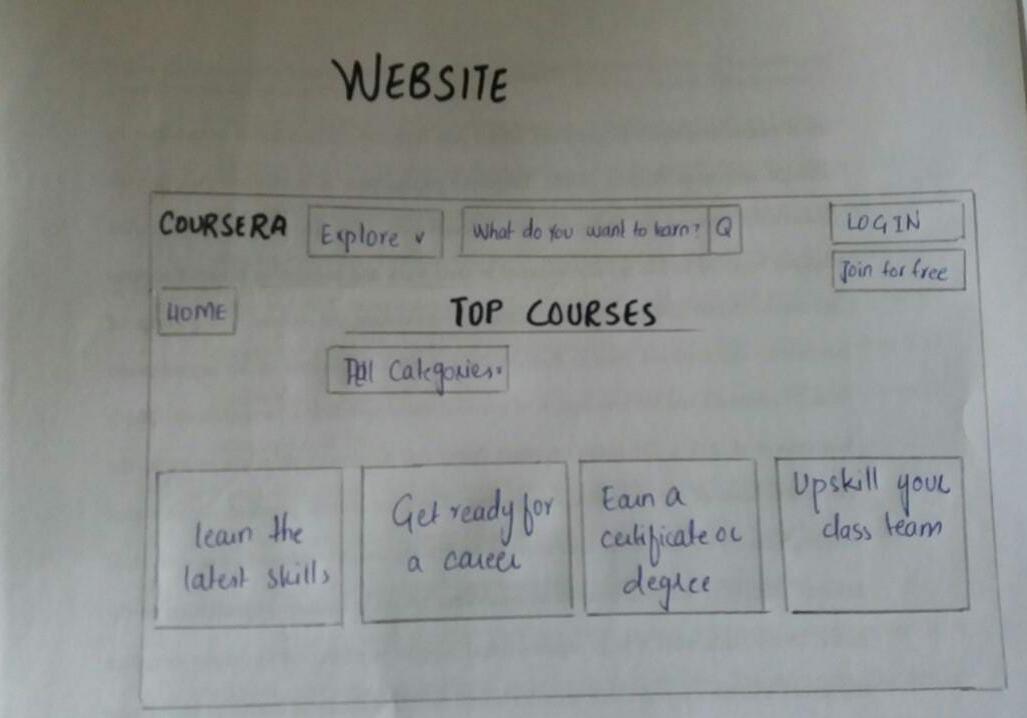 WEBSITE
COURSERA
Explore v
What do you want to learn? Q
LOGIN
Join for free
HOME
TOP COURSES
All Categories
learn the
latest skills
Get ready for
a career
Earn a
certificate or
degree
Upskill your
class team